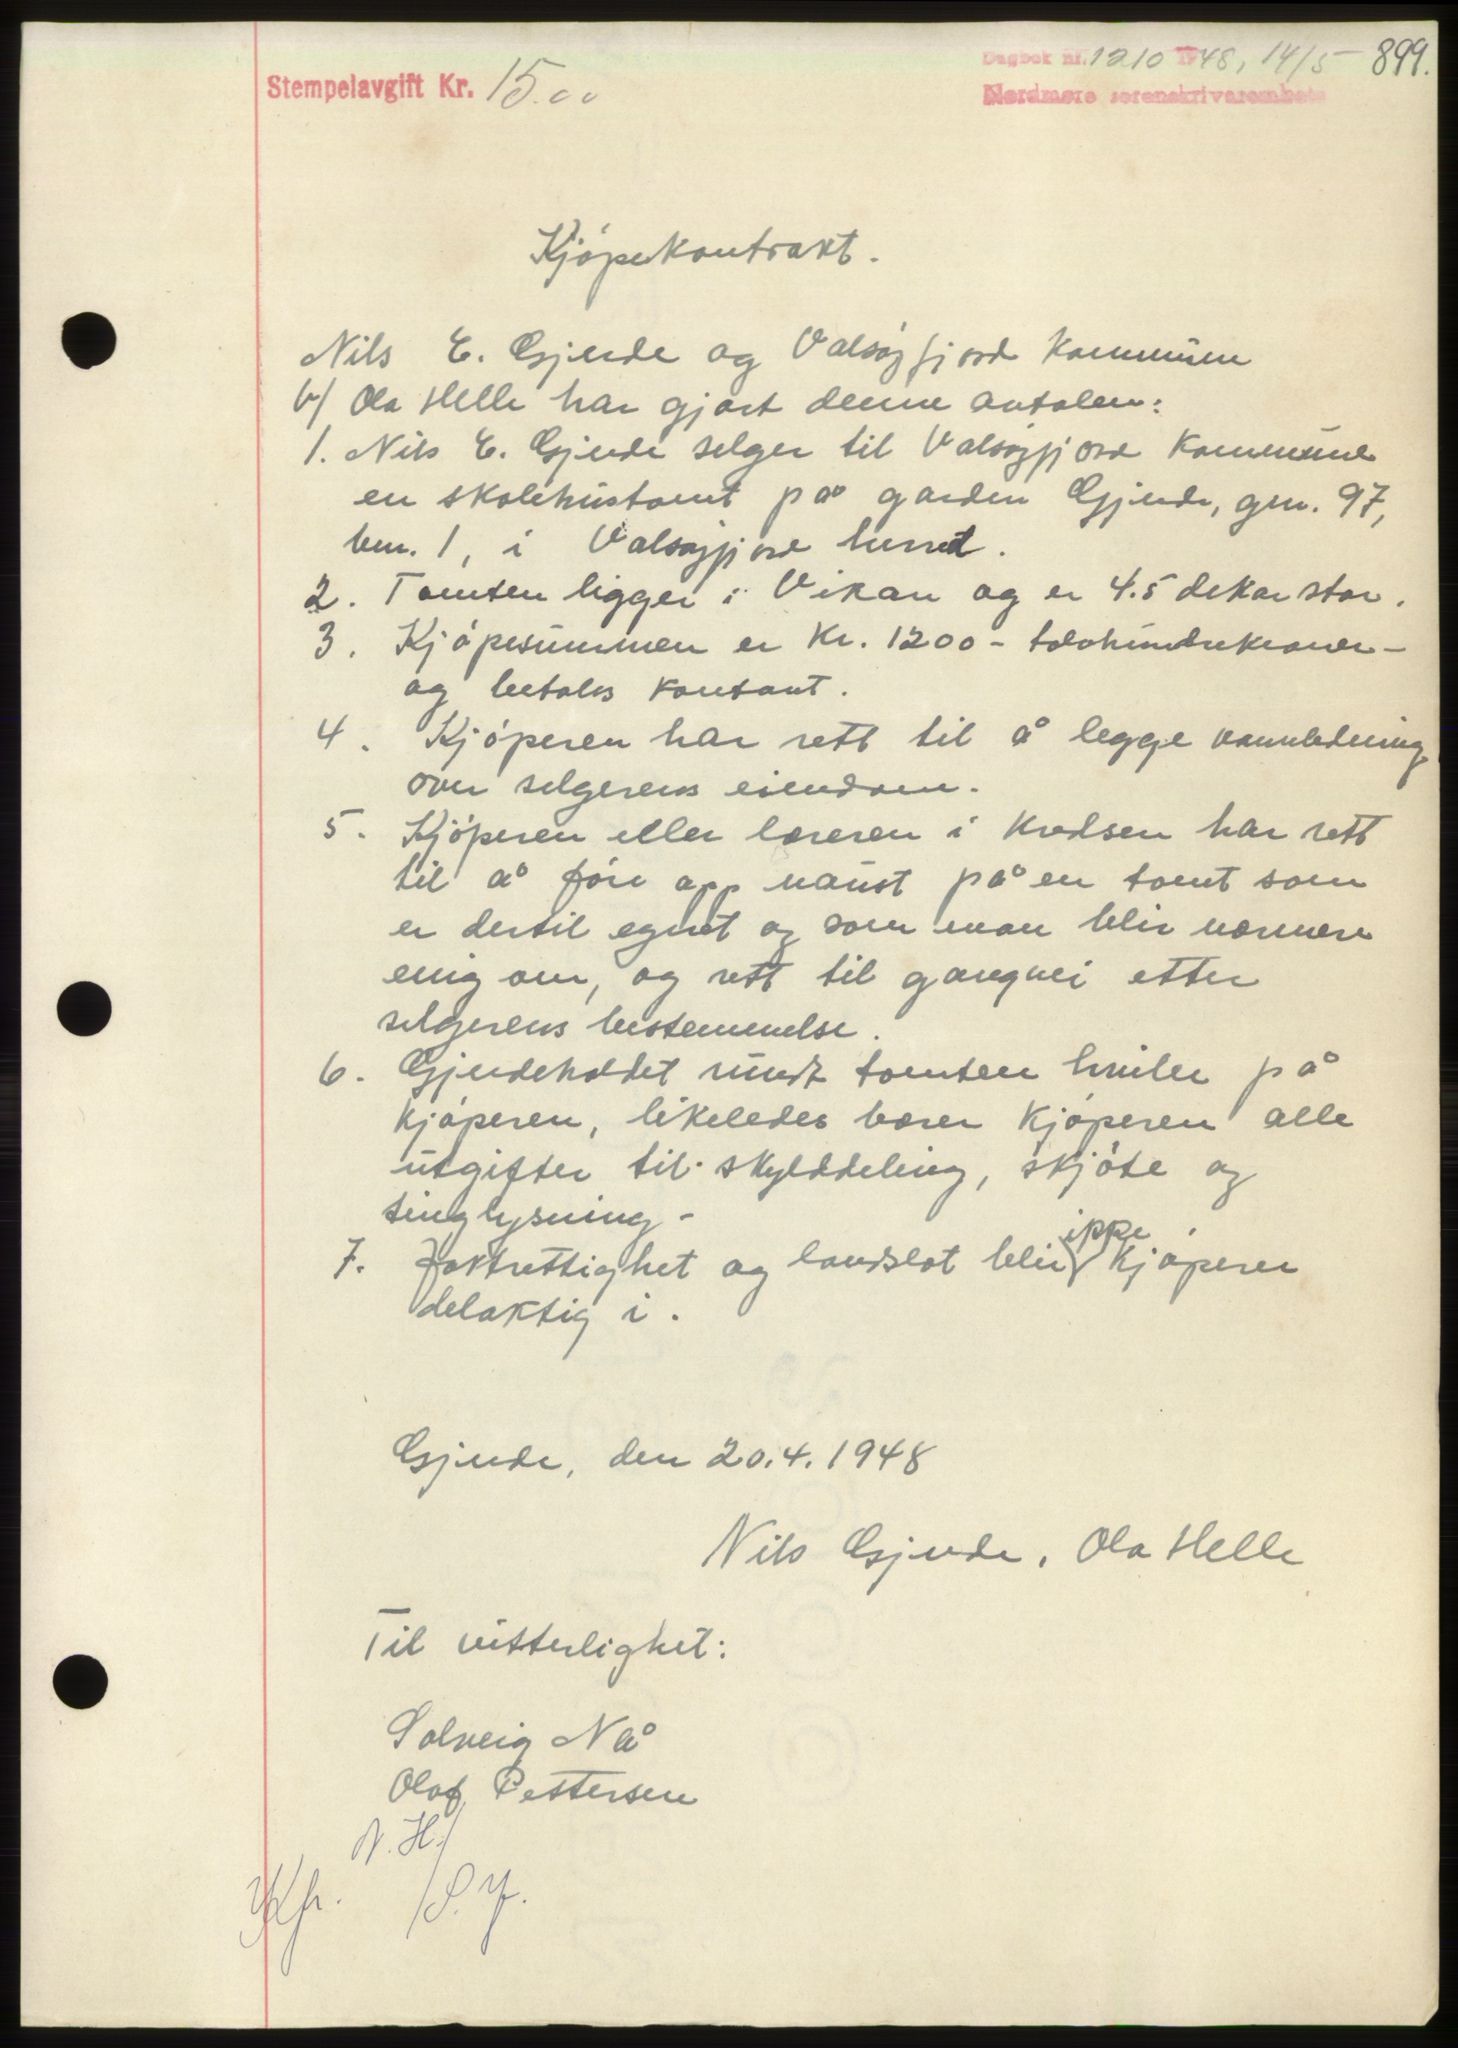 Dagbok nr. 1210 1948, 14/5 899.
Stempelavgift Kr. 15.00
Nordmøre sorenskriverembete
Kjöpekontrakt.
Nils E. Gjerde og Valsøyfjord kommune
v/ Ola Helle har gjort denne avtalen:
1. Nils E. Gjerde selger til Valsøyfjord kommune
en skolehustomt på garden Gjerde, gnr. 97,
bnr. 1, i Valsøyfjord herred.
2. Tomten ligger i Vikan og er 4.5 dekar stor.
3. Kjöpesummen er Kr. 1200 - tolvhundrekroner -
og betales kontant.
4. Kjöperen har rett til å legge vannledning
over selgerens eiendom.
5. Kjöperen eller læreren i kredsen har rett
til å före opp naust på en tomt som
er dertil egnet og som man blir nærmere
enig om, og rett til gangvei etter
selgerens bestemmelse.
6. Gjerdeholdet rundt tomten hviler på
kjöperen, likeledes bærer kjöperen alle
utgifter til skylddeling, skjöte og
tinglysning -
7. Jaktrettighet og landslot blir ippe kjöperen
delaktig i.
Gjerde, den 20.4.1948
Nils Gjerde. Ola Helle
Til vitterlighet:
Solveig Nå
Olaf Pettersen
N.H./
/S.Y.